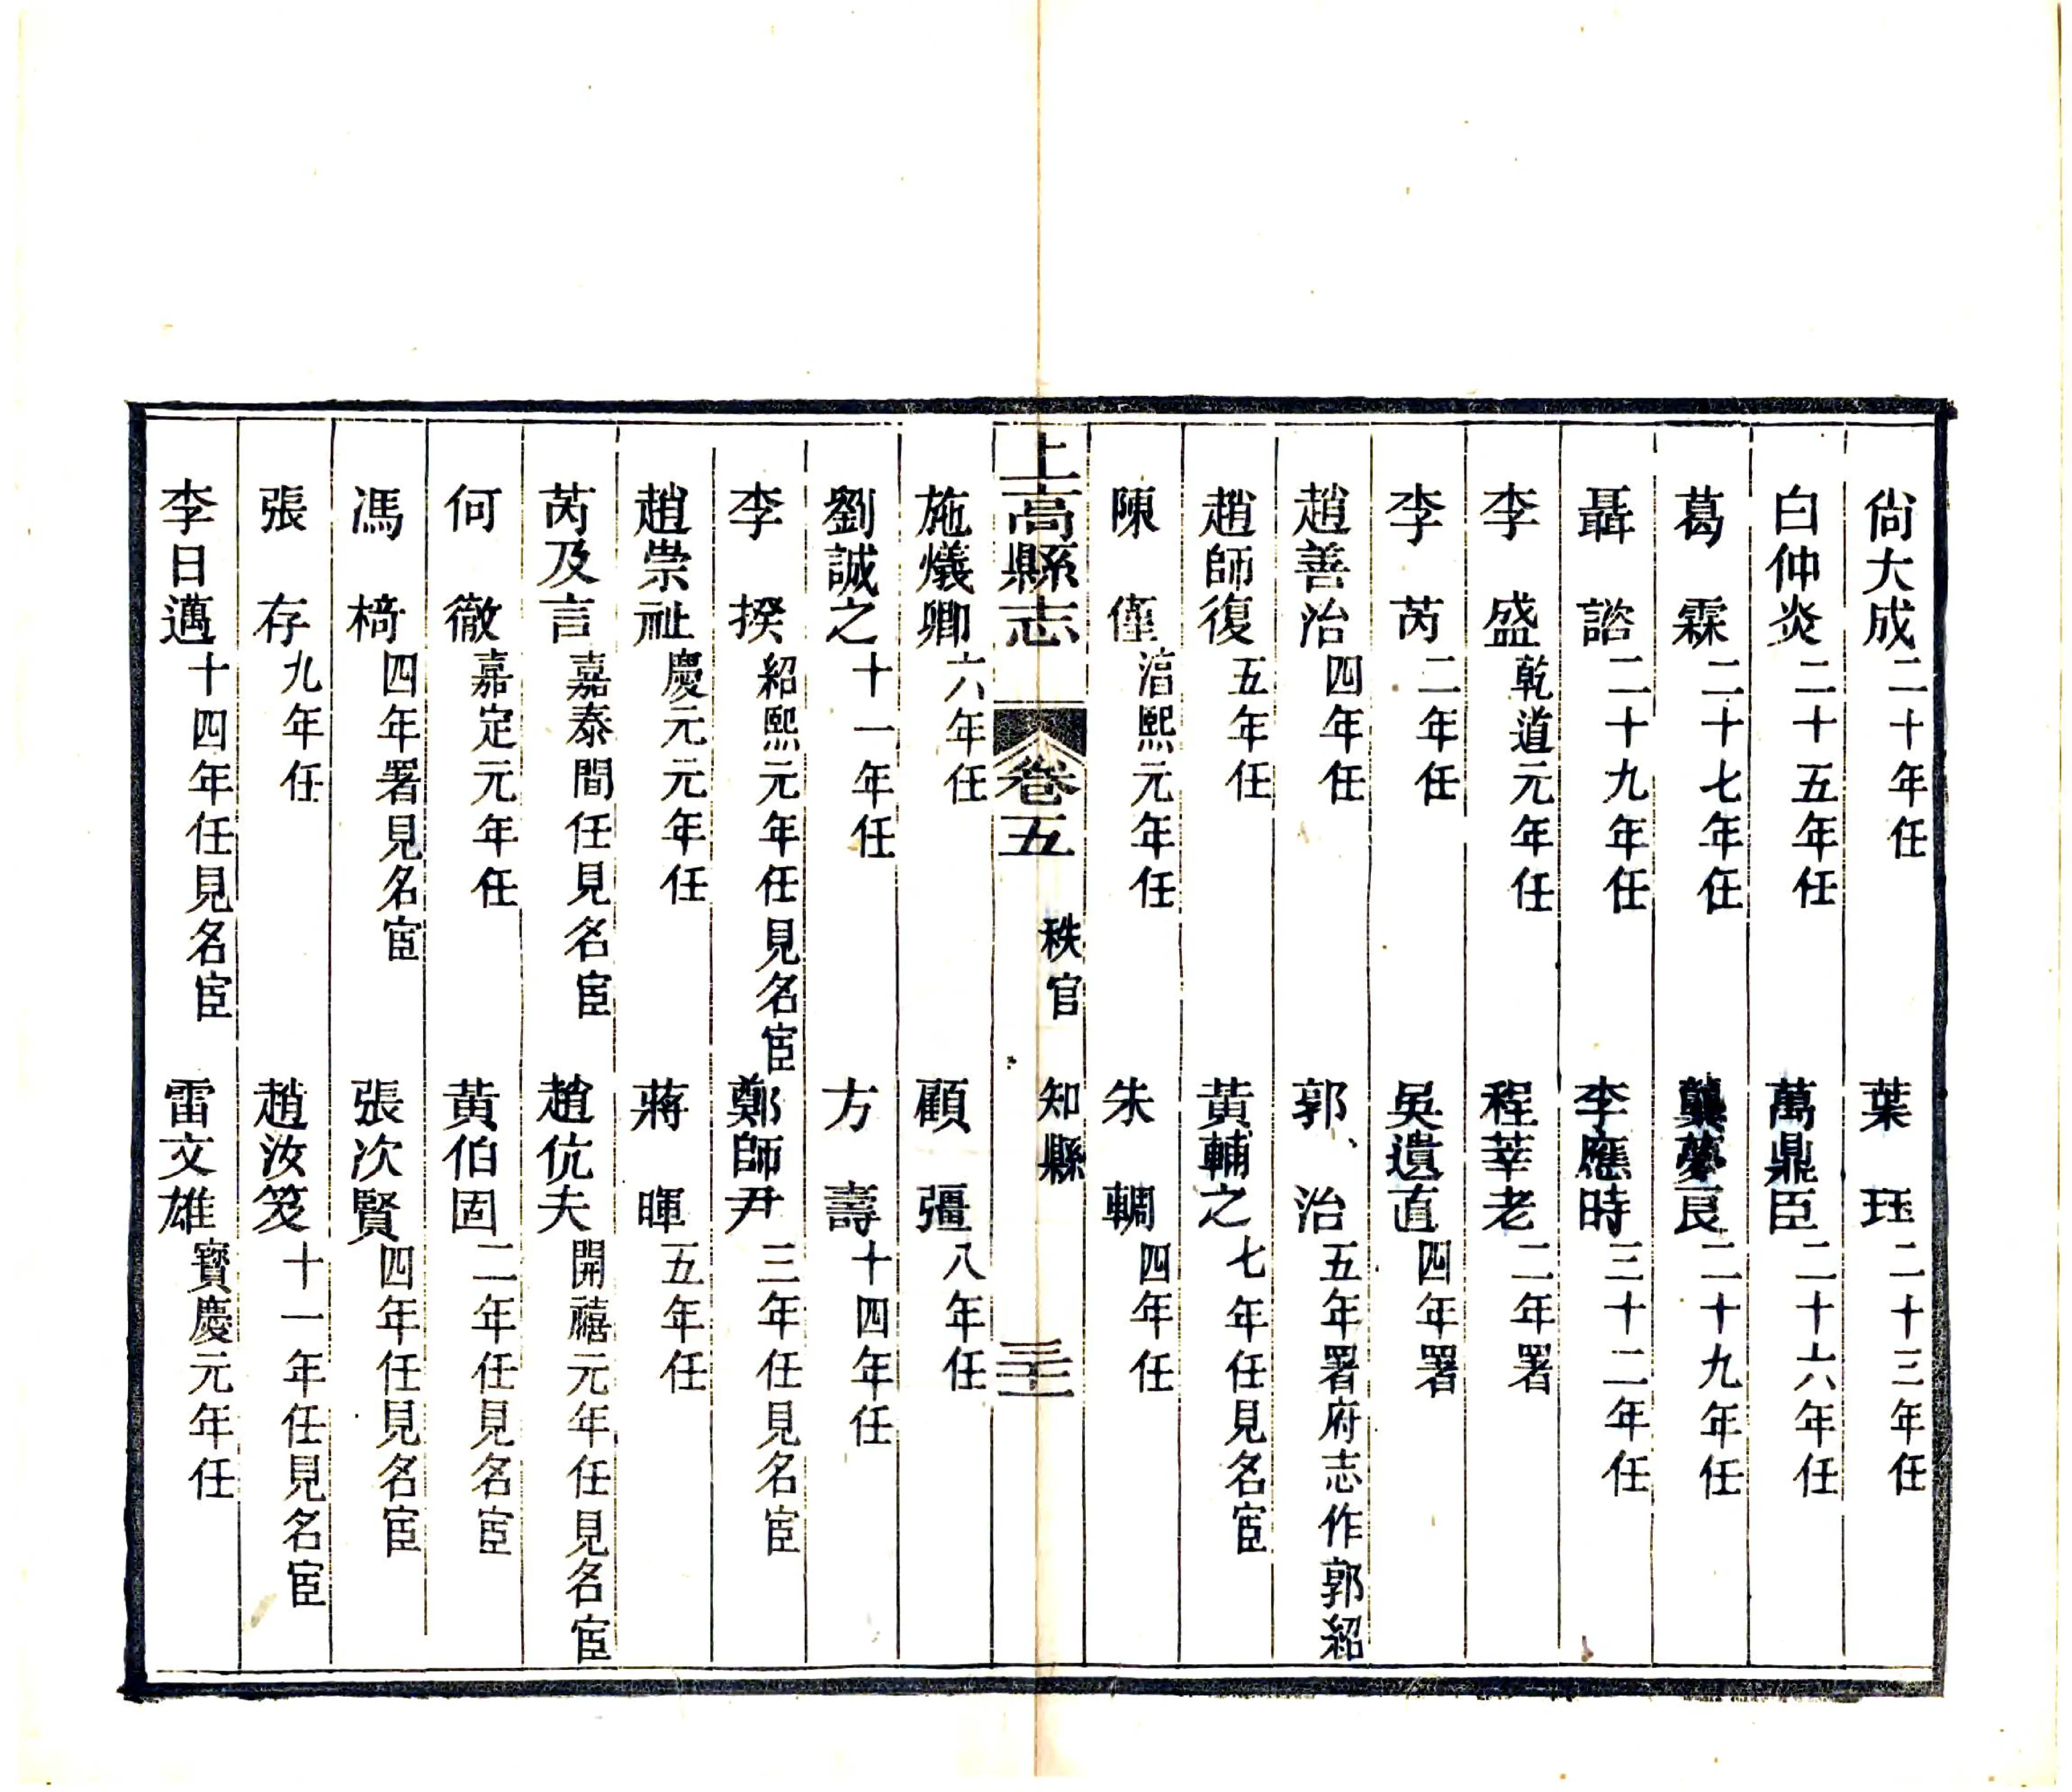 尙大成二十年任　葉珏二十三年任
白仲炎二十五年任　萬鼎臣二十六年任
葛霖二十七年任　龔夢良二十九年任
聶諮二十九年任　李應時三十二年任
李盛乾道元年任　程莘老二年署
李芮二年任　吳遺直四年署
趙善治四年任　郭治五年署府志作郭紹
趙師復五年任　黃輔之七年任見名宦
陳僅湻熙元年任　朱輖四年任
上高縣志　卷五　秩官　知縣　三十二
施燨卿六年任　顧彊八年任
劉誠之十一年任　方壽十四年任
李揆紹熙元年任見名宦　鄭師尹三年任見名宦
趙崇祉慶元元年任　蔣暉五年任
芮及言嘉泰間任見名宦　趙伉夫開禧元年任見名宦
何徹嘉定元年任　黃伯固二年任見名宦
馮椅四年署見名宦　張次賢四年任見名宦
張存九年任　趙汝笅十一年任見名宦
李日邁十四年任見名宦　雷文雄寶慶元年任